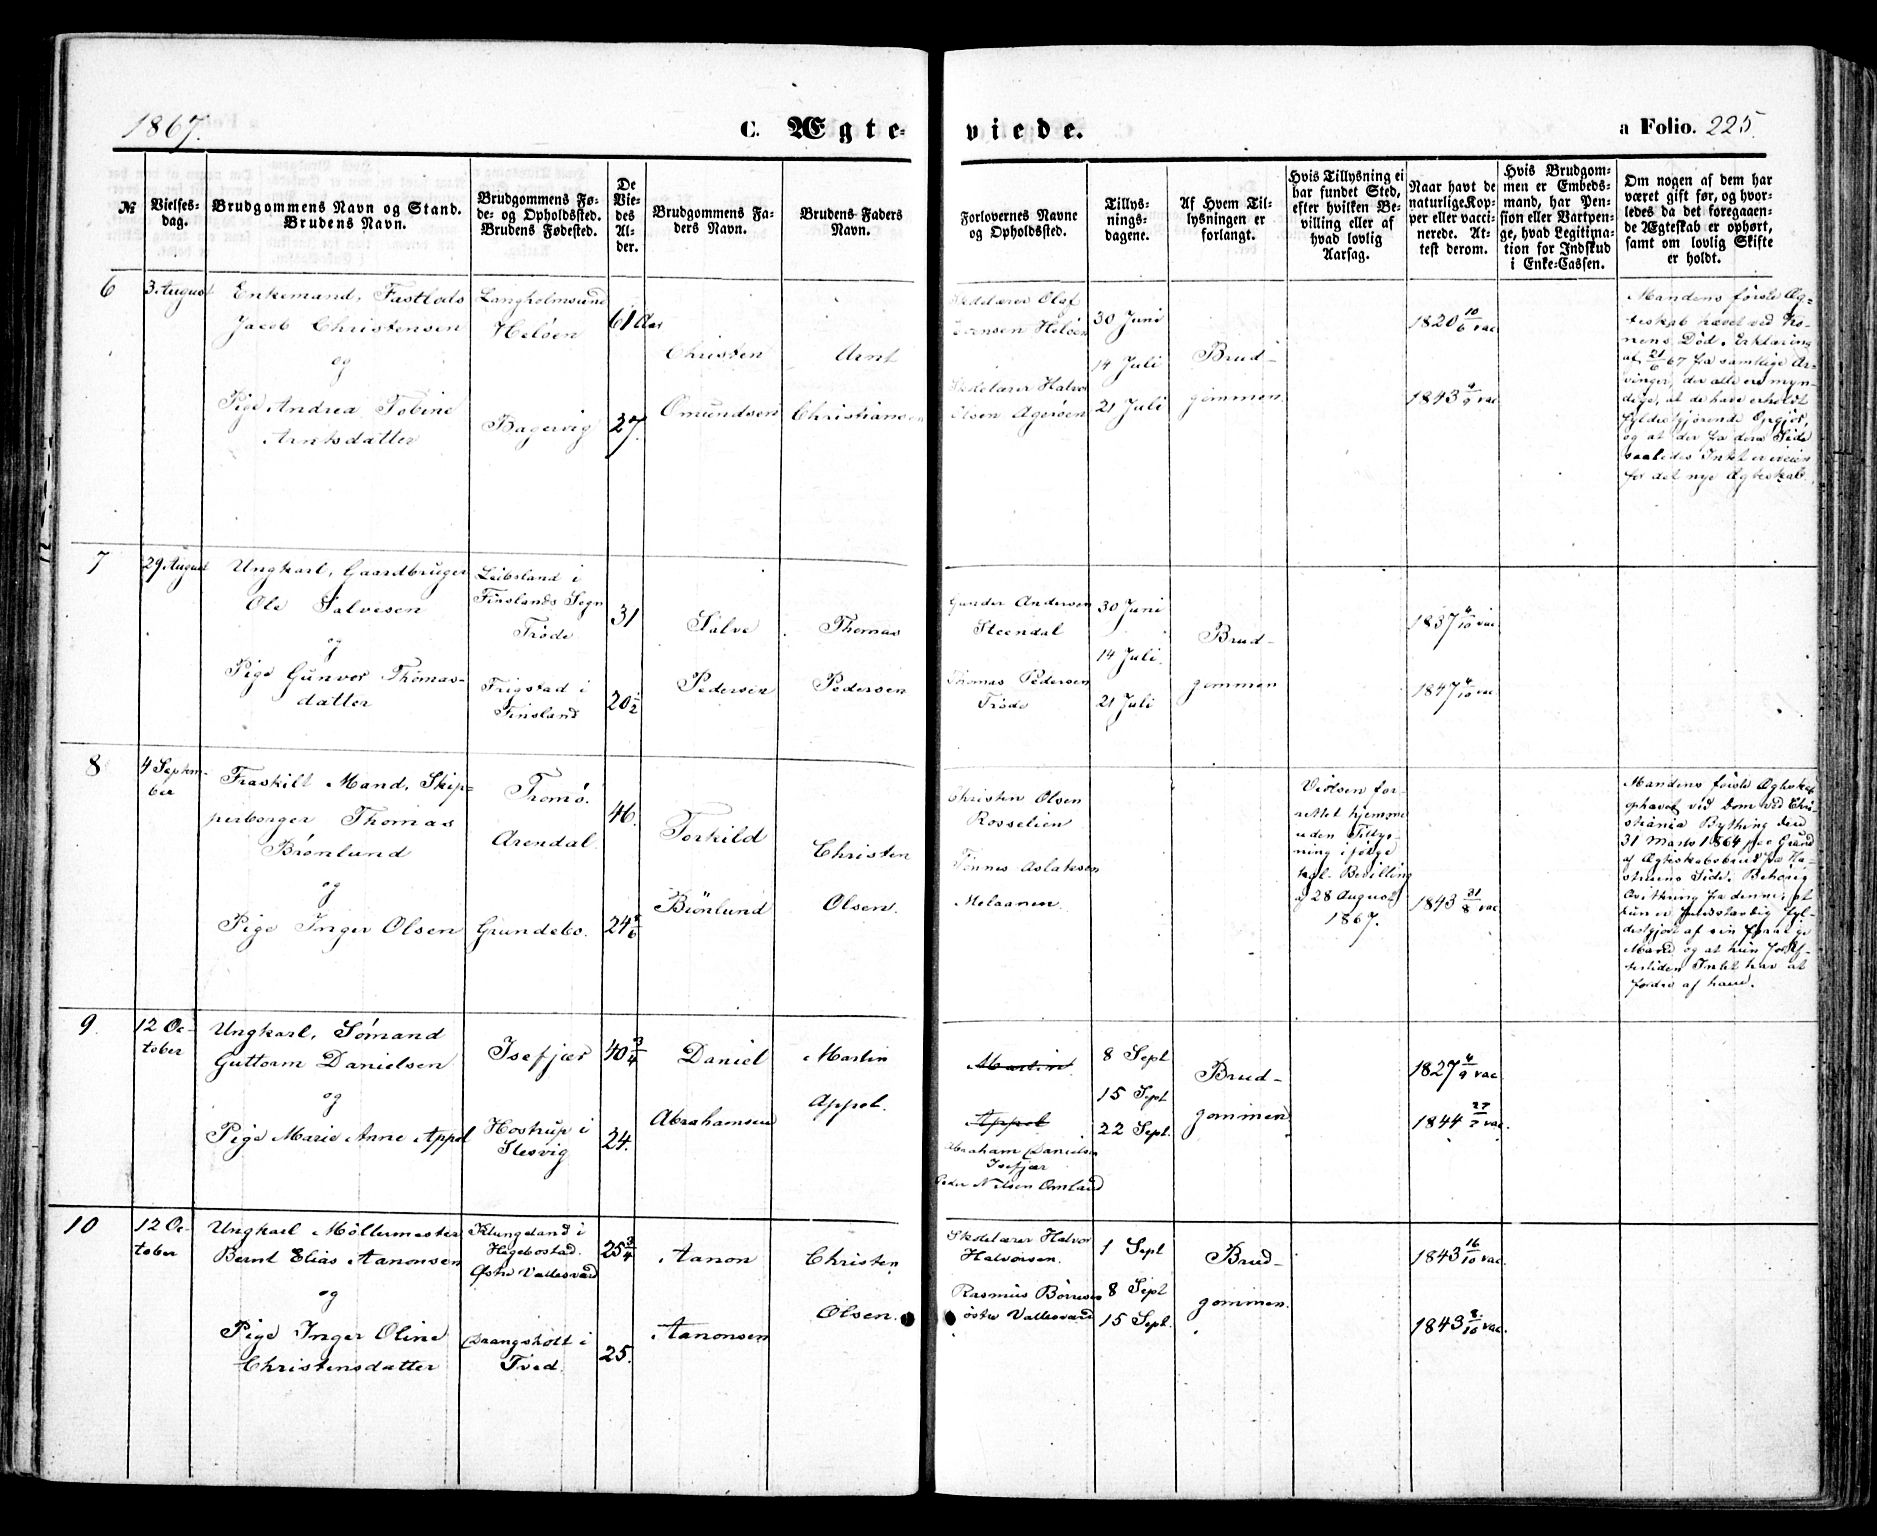 1867.
C. Ægte-
viede.
a Folio. 225.
№
Vielses-
dag.
Brudgommens Navn og Stand.
Brudens Navn.
Brudgommens Fø-
de- og Opholdssted.
Brudens Fødested.
De
Vie-
des
Al-
der.
Brudgommens Fa-
ders Navn.
Brudens Faders
Navn.
Forlovernes Navne
og Opholdssted.
Tillys-
nings-
dagene.
Af Hvem Til-
lysningen er
forlangt.
Hvis Tillysning ei
har fundet Sted,
efter hvilken Be-
villing eller af
hvad lovlig
Aarsag.
Naar havt de
naturlige Kop-
per eller vacci-
nerede. At-
test derom.
Hvis Brudgom-
men er Embeds-
mand, har Pen-
sion eller Vartpen-
ge, hvad Legitima-
tion for Indskud
i Enke-Cassen.
Om nogen af dem har
været gift før, og hvor-
ledes da det foregaaen-
de Ægteskab er ophørt,
samt om lovlig Skifte
er holdt.
6
3 August
Enkemand, Fastlods
Jacob Christensen
og
Pige Andrea Tobine
Arntsdatter
Langholmsund
Heløen
Bagervig
61 Aar
27.
Christen
Omundsen
Arnt
Christiansen
Skolelærer Olaf
Hansen Heløen
Skolelærer Halvor
Olsen Agerøen
30 Juni
14 Juli
21 Juli
Brud-
gommen
1820 10/6 vac
1843 4/9 vac
Mandens første Æg-
teskab hævet ved Ko-
nens Død. Erklæring
af 21/6 67 fra samtlige Ar-
vinger, der alle ere myn-
dige, at de have erholdt
fyldestgjørende Opgjør,
og at der fra deres Side
saaledes Intet er iveien
for det nye Ægteskab.
7
29 August
Ungkarl, Gaardbruger
Ole Salvesen
og
Pige Gunvor Thomas-
datter
Leibsland i
Finslands Sogn
Trøde
Frigstad i
Finsland
31
20 1/2
Salve
Pedersen
Thomas
Pedersen
Gunder Andersen
Steendal
Thomas Pedersen
Trøde
30 Juni
14 Juli.
21 Juli
Brud-
gommen
1837 4/10 vac
1847 4/10 vac
8
4 Septem-
ber
Fraskilt Mand, Skip-
perborger Thomas
Brønlund
og
Pige Inger Olsen
Tromø.
Arendal.
Grundebo.
46.
24 5/6
Torkild
Brønlund
Christen
Olsen.
Christen Olsen
Rosselien
Tønnes Aslaksen
Melaanen.
Vielsen for-
rettet hjemme
uden Tillys-
ning ifølge
kgl. Bevilling
d 28 August
1867.
1843 31/8 vac
Mandens første Ægteskab
ophævet ved Dom ved Chri-
stiania Bything den
31 Marts 1864 paa Grund
af Ægteskabsbrud fra Ko-
nens Side. Behørig
Qvittering fra denne, at
hun er fuldstændig fyl-
destgjort af sin forrige
Mand og at hun for Ef-
tertiden Intet har at
fordre af ham.
9
12 Oc-
tober
Ungkarl, Sømand
Guttorm Danielsen
og
Pige Marie Anne Appel
Isefjær
Hostrup i
Slesvig
40 3/4
24.
Daniel
Abrahamsen
Martin
Appel.
Martin
Appel
Abraham Danielsen
Isefjær
Peder Nilsen Omland
8 Sept
15 Sept
22 Sept.
Brud-
gommen
1827 4/9 vac
1844 27/7 vac.
10
12 Oc-
tober
Ungkarl Møllermester
Bernt Elias Aanonsen
og
Pige Inger Oline
Christensdatter
Klungeland i
Hægebostad.
Østre Vallesværd
Drangsholt i
Tved.
25 3/4
25.
Aanon
Aanonsen
Christen
Olsen.
Skolelærer Halvor
Halvorsen.
Rasmus Børresen
østre Vallesværd
1 Sept
8 Sept
15 Sept.
Brud-
gommen.
1843 16/10 vac.
1843 8/10 vac.